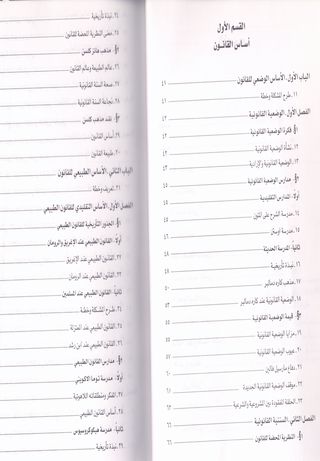 القسم الأول
أساس القانون
الباب الأول، الأساس الوضعي للقانون ٤٩
١١. طرح المشكلة وخطة
الفصل الأول، الوضعية القانونية
§١. فكرة الوضعية القانونية
١٢. نشأة الوضعية القانونية
١٣. الوضعية القانونية والإرادية
§٢. مدارس الوضعية القانونية
أولًا، المدارس التقليدية
١٤. مدرسة الشرح على المتون
١٥. مدرسة أوستن
ثانية، المدرسة الحديثة
١٦. نبذة تأريخية
١٧. مذهب كاره دمالبر
١٨. الوضعية القانونية عند كاره دمالبر
§٣. قيمة الوضعية القانونية
١٩. مزايا الوضعية القانونية
٢٠. عيوب الوضعية القانونية
٢١. دفاع مارسيل فالين
٢٢. موقف الوضعية القانونية الجديدة
٢٣. الحلقة المفقودة بين المشروعية والشرعية
الفصل الثاني، السننية القانونية
§١. النظرية المحضة للقانون ٦٦
٢٤. نبذة تأريخية
٢٥. معنى النظرية المحضة للقانون
§٢. مذهب هانز كلسن
٢٦. عالم الطبيعة وعالم القانون
٢٧. صحة السنة القانونية
٢٨. نجاعة السنة القانونية
§٣. نقد مذهب كلسن
٢٩. أساس القانون
٣٠. طبيعة القانون
الباب الثاني، الأساس الطبيعي للقانون
٣١. تعريف وخطة
الفصل الأول، الأساس التقليدي للقانون الطبيعي
§١. الجذور التأريخية للقانون الطبيعي
أولا، القانون الطبيعي عند الإغريق والرومان
٣٢. القانون الطبيعي عند الإغريق
٣٣. القانون الطبيعي عند الرومان
ثانية، القانون الطبيعي عند المسلمين
٣٤. طرح المشكلة وخطة
٣٥. القانون الطبيعي عند المعتزلة
٣٦. القانون الطبيعي عند ابن رشد
§٢. مدارس القانون الطبيعي
أولا، مدرسة توما الأكويني
٣٧. الفكر ومنطلقاته اللاهوتية
٣٨. أساس القانون الطبيعي
ثانية، مدرسة هيكوكروسيوس
٣٩. نبذة تأريخية